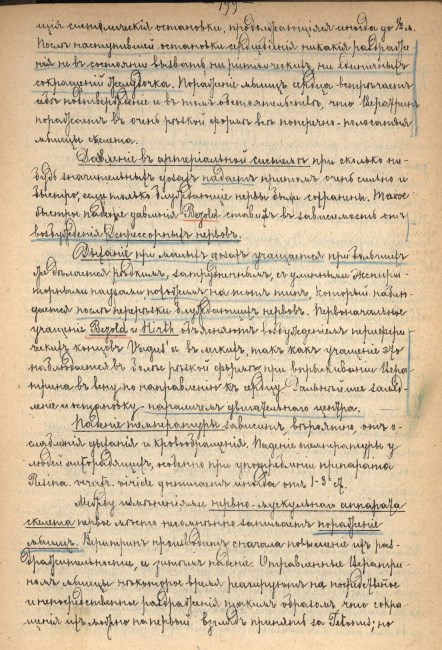 199
щія систолическія остановки, продолжающіяся иногда до ½ м.
Послѣ наступившей остановки сердцебіенія никакія раздраже
нія не въ состояніи вызвать ни ритмическихъ, ни единичныхъ
сокращеній желудочка. Пораженіе мышцъ сердца встрѣчаетъ
себѣ подтвержденіе и въ томъ обстоятельствѣ, что Вератринъ
поражаетъ въ очень рѣзкой формѣ всѣ поперечно-полосатыя
мышцы скелета.
Давленіе въ артеріальной системѣ при сколько ни-
будь значительныхъ дозахъ падаетъ притомъ очень сильно и
быстро, если только блуждающіе нервы были сохранены. Такое
быстрое паденіе давленія Bezold ставитъ въ зависимость отъ
возбужденія депрессорныхъ нервовъ.
Дыханіе при малыхъ дозахъ учащается при большихъ
же дѣлается рѣдкимъ, затрудненнымъ, съ длинными экспира-
торными паузами походящимъ на тотъ типъ, который наблю-
дается послѣ перерѣзки блуждающихъ нервовъ. Первоначальное
учащеніе Bezold и Hirth объясняютъ возбужденіемъ перифери-
ческихъ концовъ Vagus'а въ легкихъ, такъ какъ учащеніе это
наблюдается въ болѣе рѣзкой формѣ при впрыскиваніи Вера-
трина въ вену по направленію къ сердцу. Дальнѣйшее замед-
леніе и остановку - параличемъ дыхательнаго центра.
Паденіе температуры зависитъ вѣроятно, отъ о-
слабленія дыханія и кровообращенія. Паденіе температуры у
людей лихорадящихъ, особенно при употребленіи препарата
Resina veratr. viride достигаетъ иногда отъ 1-3° Ц.
Между измѣненіями нервно-мускульнаго аппарата
скелета первое мѣсто несомнѣнно занимаетъ пораженіе
мышцъ. Вератринъ производитъ сначала повышеніе ихъ раз-
дражительности, и затѣмъ паденіе. Отравленныя Вератри-
номъ мышцы нѣкоторое время реагируютъ на посредственное
и непосредственное раздраженія такимъ образомъ что сокра-
щенія ихъ можно на первый взглядъ принять за Tetanus; но